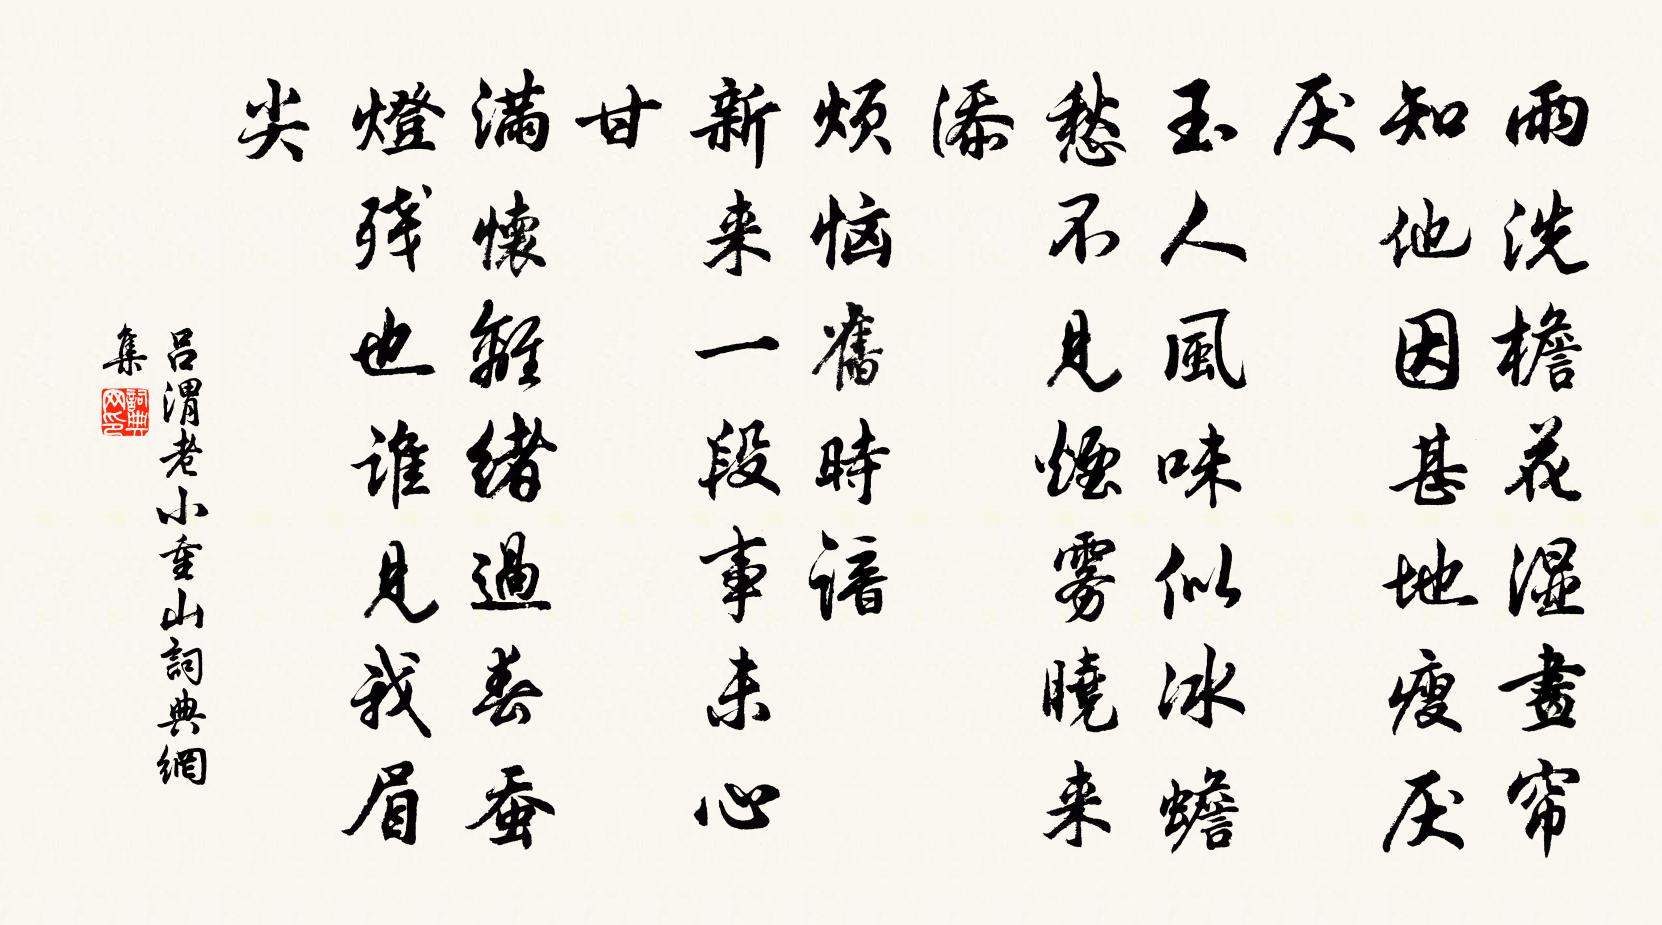 雨洗檐花湿畫帘
知他因甚地瘦厌
厌
玉人風味似冰蟾
愁不見煙雾曉来
添
烦恼舊時谙
新来一段事未心
甘
满懷離緒過春蚕
燈残也谁見我眉
尖
吕渭老小重山詞典網
集
詞典
网印